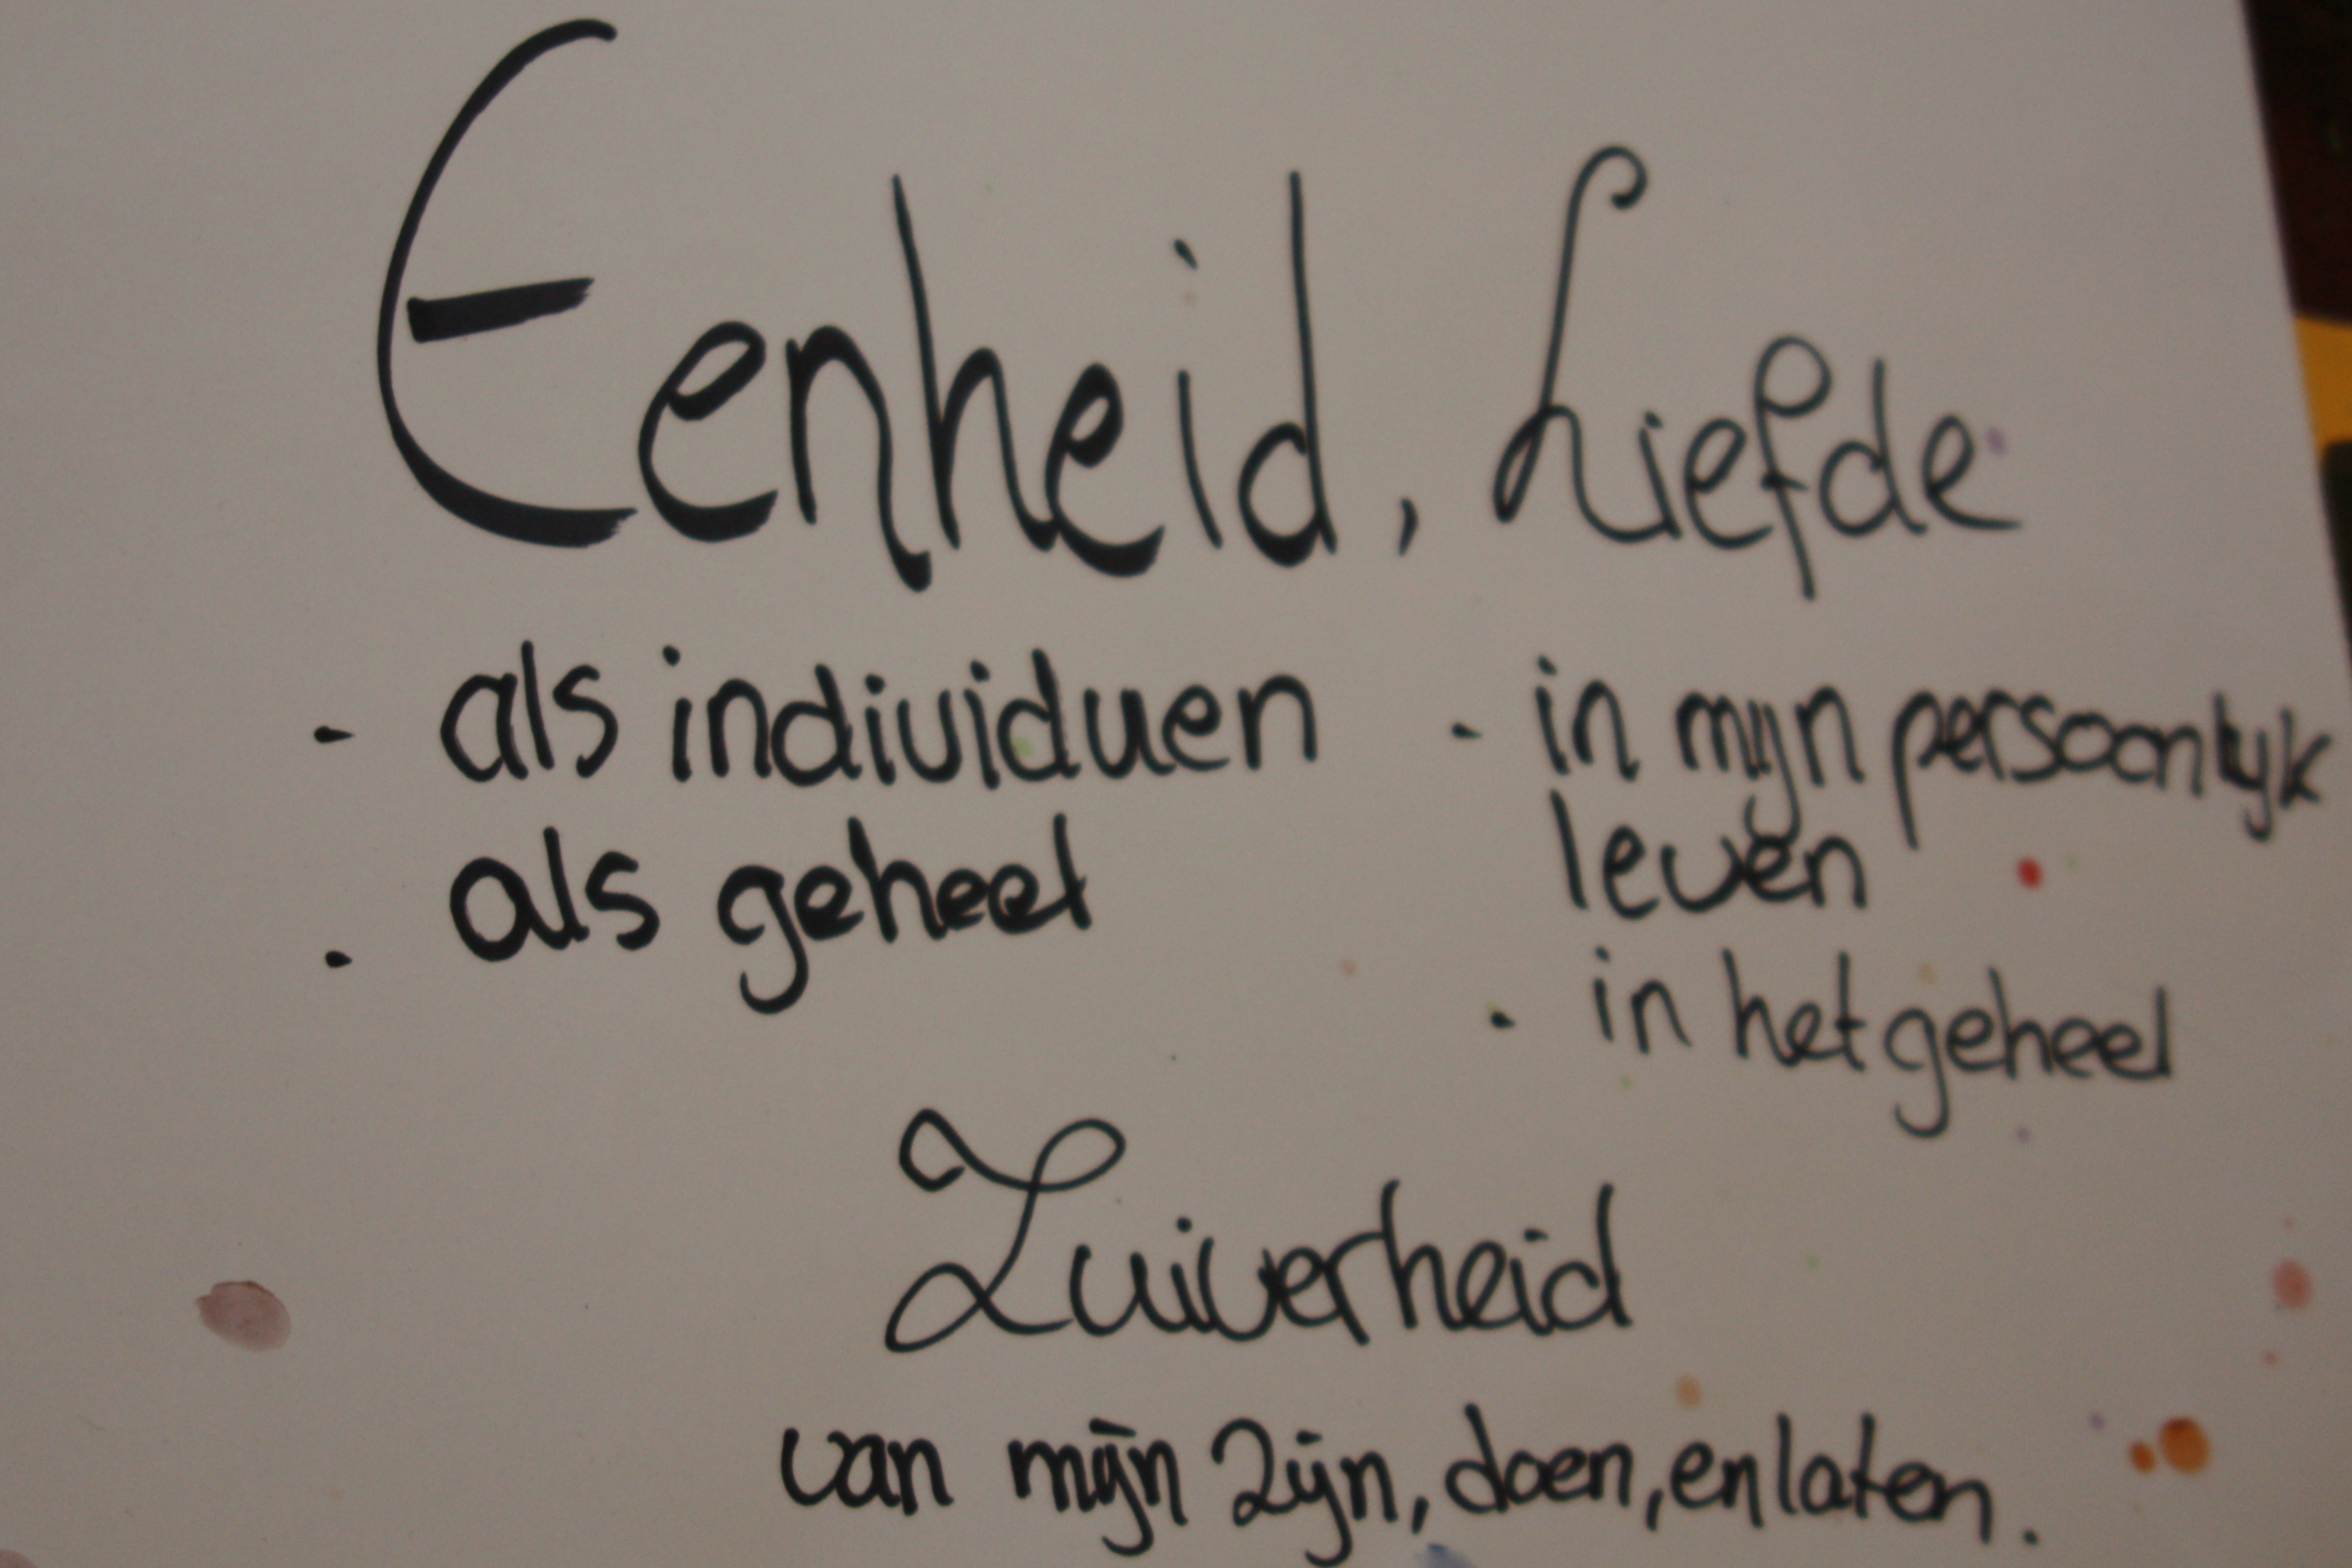 Eenheid, Liefde
- als individuen
- als geheel
- in mijn persoonlijk
leven
- in het geheel
Zuiverheid
van mijn zijn, doen, en laten.